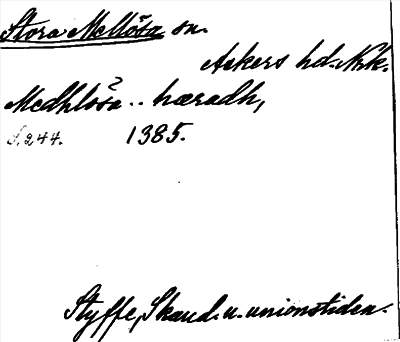 Stora Mellösa sn.
Askers hd. Nrk.
Medhlösa .. hæradh,
S. 244. 1385.
Styffe, Skand. u. unionstiden.